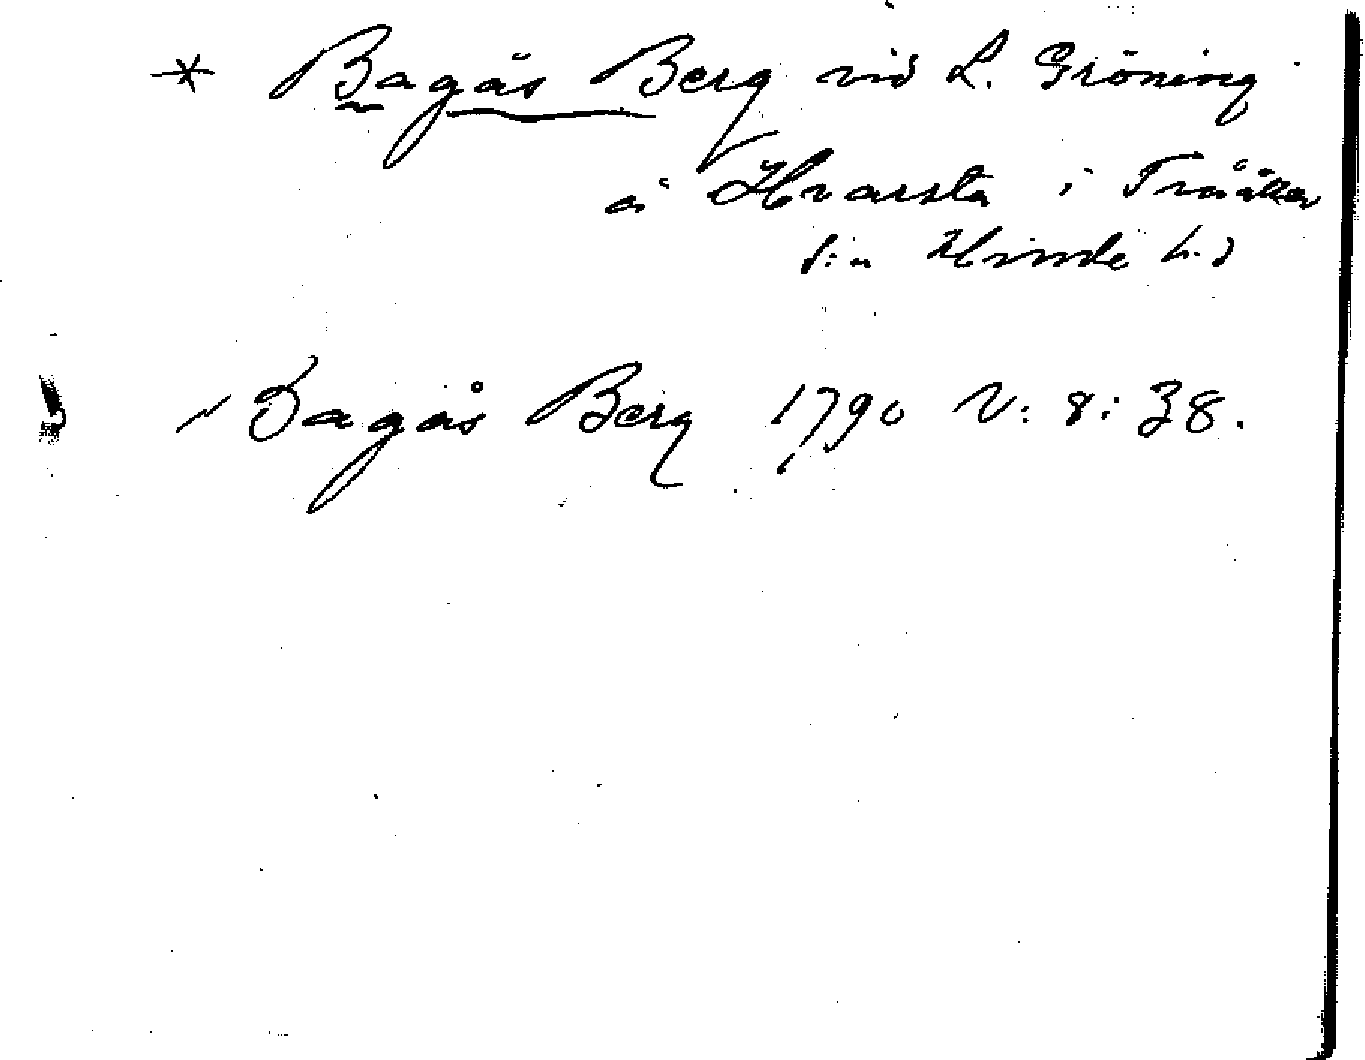 * Bagås Berg vid L. Gröning
å Hvarsta i Träåttor
s:n Kinde h.d
Dagås Berg 1790 V: 8: 38.